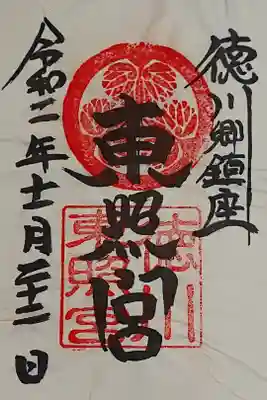 徳川郷鎮座
東照宮
令和二年十一月二十二日
徳川
東照宮